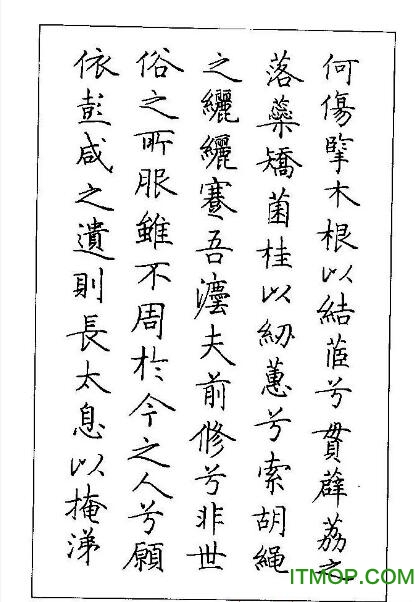 何傷掔木根以結茝兮貫薜荔之
落蘂矯菌桂以紉蕙兮索胡繩
之纚纚謇吾灋夫前修兮非世
俗之所服雖不周於今之人兮願
依彭咸之遺則長太息以掩涕
ITMOP.COM